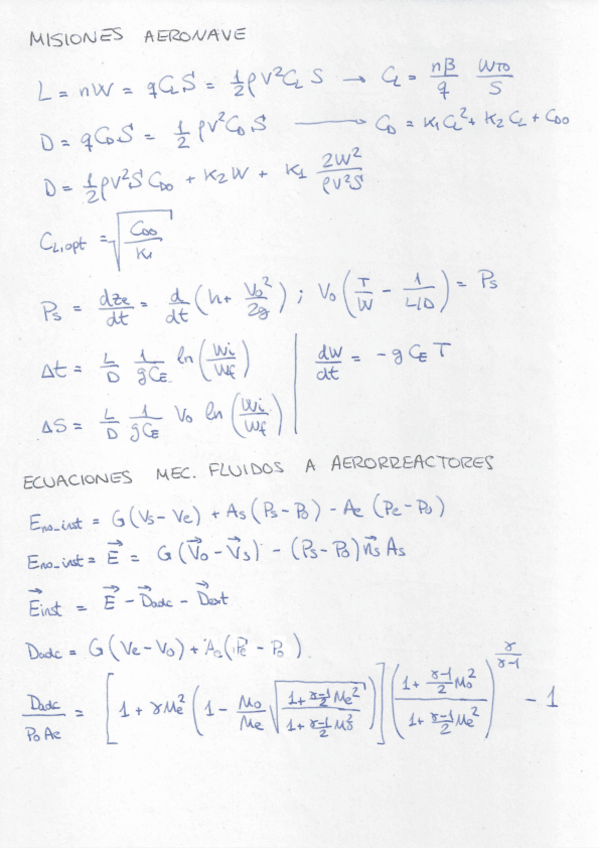 MISIONES AERONAVE
L = nW = qC_L S = 1/2 ρV²C_L S → C_L = nβ/q W_TO/S
D = qC_D S = 1/2 ρV²C_D S → C_D = K₁C_L² + K₂C_L + C_D0
D = 1/2 ρV²S C_D0 + K₂W + K₁ 2W²/ρV²S
C_L,opt = √(C_D0/K₁)
P_s = dze/dt = d/dt (h + V₀²/2g) ; V₀ (T/W − 1/(L/D)) = P_s
Δt = L/D 1/(gC_E) ln (Wi/Wf) | dW/dt = −g C_E T
ΔS = L/D 1/(gC_E) V₀ ln (Wi/Wf)
ECUACIONES MEC. FLUIDOS A AERORREACTORES
E_no_inst = G(Vs − Ve) + As(Ps − P₀) − Ae (Pe − P₀)
E_no_inst = E⃗ = G(V⃗₀ − V⃗s) − (Ps − P₀)n⃗s As
E⃗inst = E⃗ − D⃗adc − D⃗ext
Dadc = G(Ve − V₀) + Ae(Pe − P₀)
Dadc/(P₀Ae) = [1 + γMe² (1 − M₀/Me √((1 + (γ−1)/2 Me²)/(1 + (γ−1)/2 M₀²)))] ((1 + (γ−1)/2 M₀²)/(1 + (γ−1)/2 Me²))^(γ/(γ−1)) − 1